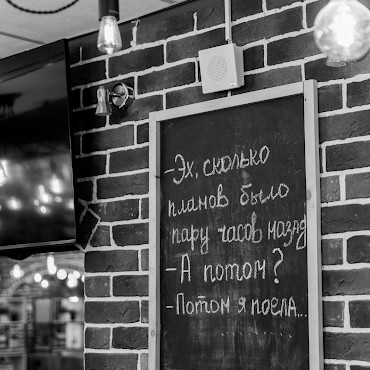 - Эх, сколько
планов было
пару часов назад
- А потом?
- Потом я поела...